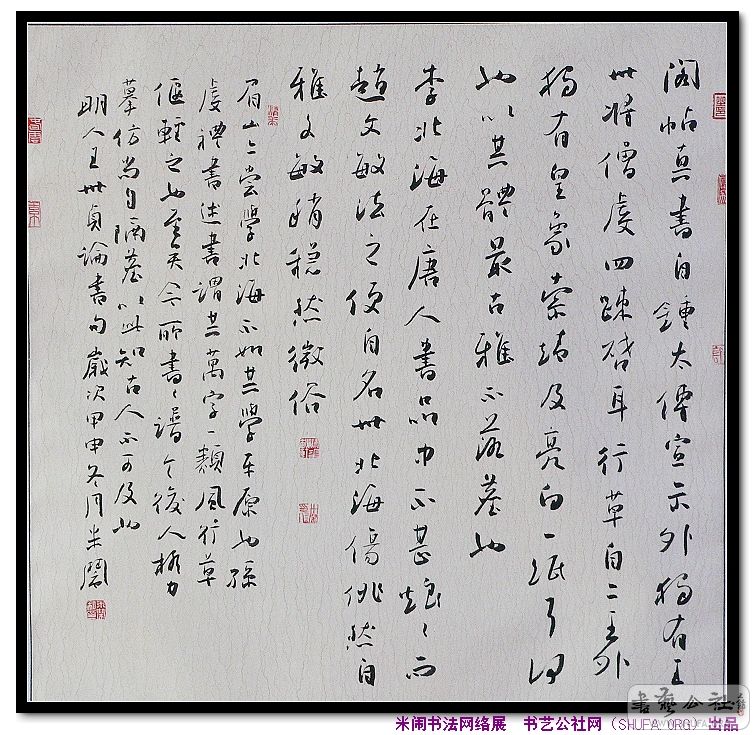 阁帖真書自鍾太傅宣示外獨有王
世将僧虔四疎啓耳行草自二王外
獨有皇象索靖及亮白一紙耳
也以其體最古雅不落墓也
李北海在唐人書品中不甚烺々而
趙文敏法之便自名世北海傷佻然自
雅文敏稍穏然微俗
眉山亡尝學北海不如其學平原也孫
虔禮書述書謂其萬字一類風行草
偃輕之也至矣今所書々譜令後人極力
摹仿尚自隔墓以此知古人不可及也
明人王世貞論書句歲次甲申冬月米閙
米闹书法网络展 书艺公社网（SHUFA.ORG）出品
書藝公社
WWW.SHUFA.ORG